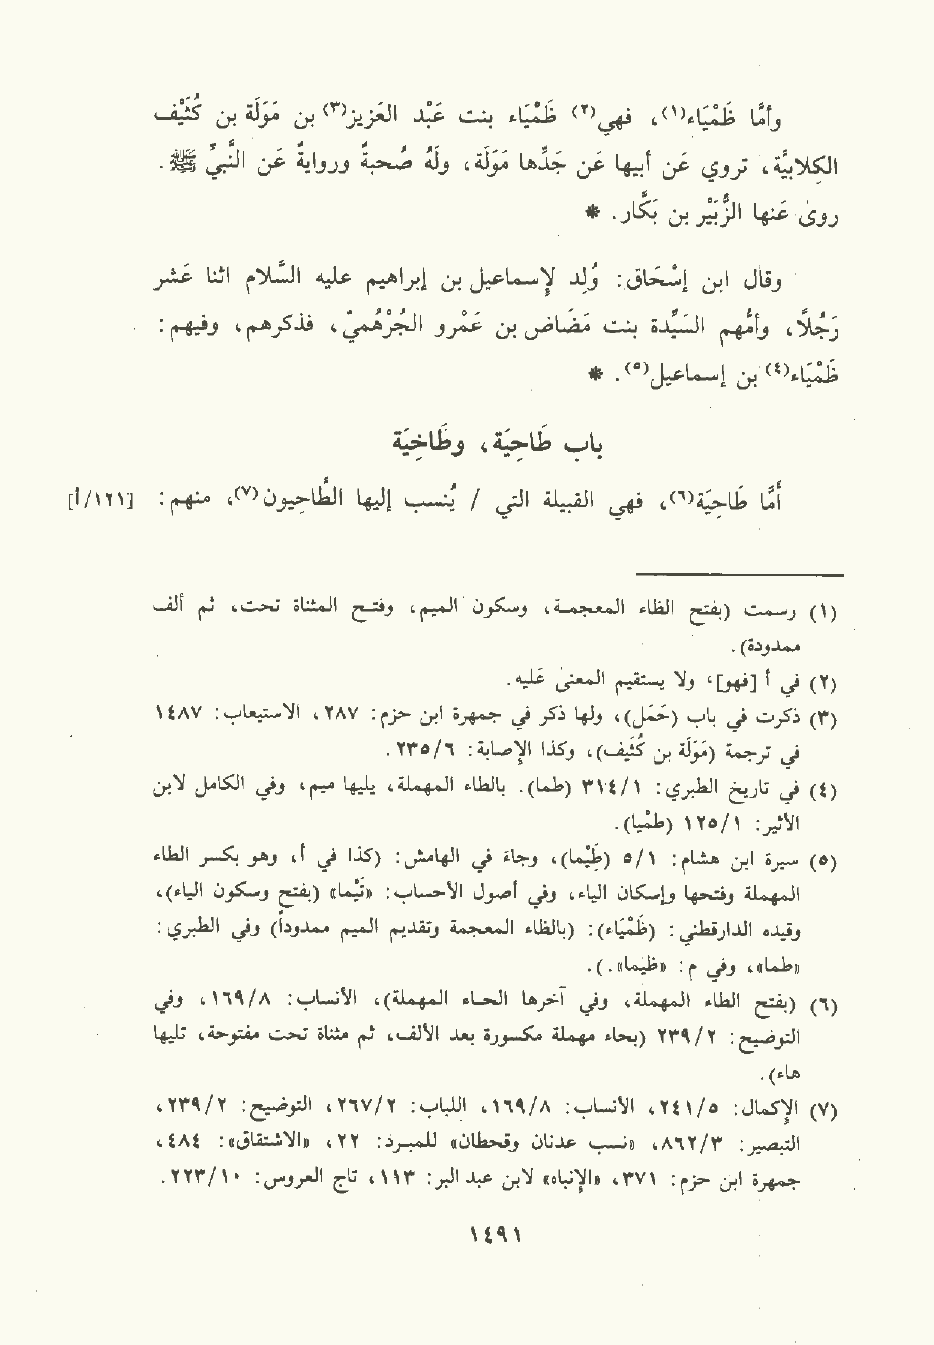 وأمَّا ظَمْيَاء(١)، فهي(٢) ظَمْيَاء بنت عَبْد العَزيز(٣) بن مَوَلَة بن كُثَيْف
الكلابيَّة، تروي عَن أبيها عَن جَدِّها مَوَلَة، ولَهُ صُحبةٌ وروايةٌ عَن النَّبيِّ ﷺ.
روىٰ عَنها الزُّبَيْر بن بَكَّار. *
وقال ابن إسْحَاق: وُلِد لإسماعيل بن إبراهيم عليه السَّلام اثنا عَشر
رَجُلاً، وأمُّهم السَّيِّدة بنت مَضَاض بن عَمْرو الجُرْهُميِّ، فذكرهم، وفيهم:
ظَمْيَاء(٤) بن إسماعيل(٥). *
باب طَاحِيَة، وظَاخِيَة
أمَّا طَاحِيَة(٦)، فهي القبيلة التي / يُنسب إليها الطَّاحِيون(٧)، منهم: [١٢١/أ]
(١) رسمت (بفتح الظاء المعجمة، وسكون الميم، وفتح المثناة تحت، ثم ألف
ممدودة).
(٢) في أ [فهو]، ولا يستقيم المعنىٰ عَليه.
(٣) ذكرت في باب (حَمَل)، ولها ذكر في جمهرة ابن حزم: ٢٨٧، الاستيعاب: ١٤٨٧
في ترجمة (مَوَلَة بن كُثَيف)، وكذا الإصابة: ٢٣٥/٦.
(٤) في تاريخ الطبري: ٣١٤/١ (طما). بالطاء المهملة، يليها ميم، وفي الكامل لابن
الأثير: ١٢٥/١ (طمْيا).
(٥) سيرة ابن هشام: ٥/١ (ظَيْما)، وجاء في الهامش: (كذا في أ، وهو بكسر الطاء
المهملة وفتحها وإسكان الياء، وفي أصول الأحساب: «تَيْما» (بفتح وسكون الياء)،
وقيده الدارقطني: (ظَمْيَاء): (بالظاء المعجمة وتقديم الميم ممدوداً) وفي الطبري:
«طما»، وفي م: «ظيما».).
(٦) (بفتح الطاء المهملة، وفي آخرها الحاء المهملة)، الأنساب: ١٦٩/٨، وفي
التوضيح: ٢٣٩/٢ (بحاء مهملة مكسورة بعد الألف، ثم مثناة تحت مفتوحة، تليها
هاء).
(٧) الإكمال: ٢٤١/٥، الأنساب: ١٦٩/٨، اللباب: ٢٦٧/٢، التوضيح: ٢٣٩/٢،
التبصير: ٨٦٢/٣، «نسب عدنان وقحطان» للمبرد: ٢٢، «الاشتقاق»: ٤٨٤،
جمهرة ابن حزم: ٣٧١، «الإنباه» لابن عبد البر: ١١٣، تاج العروس: ٢٢٣/١٠.
١٤٩١